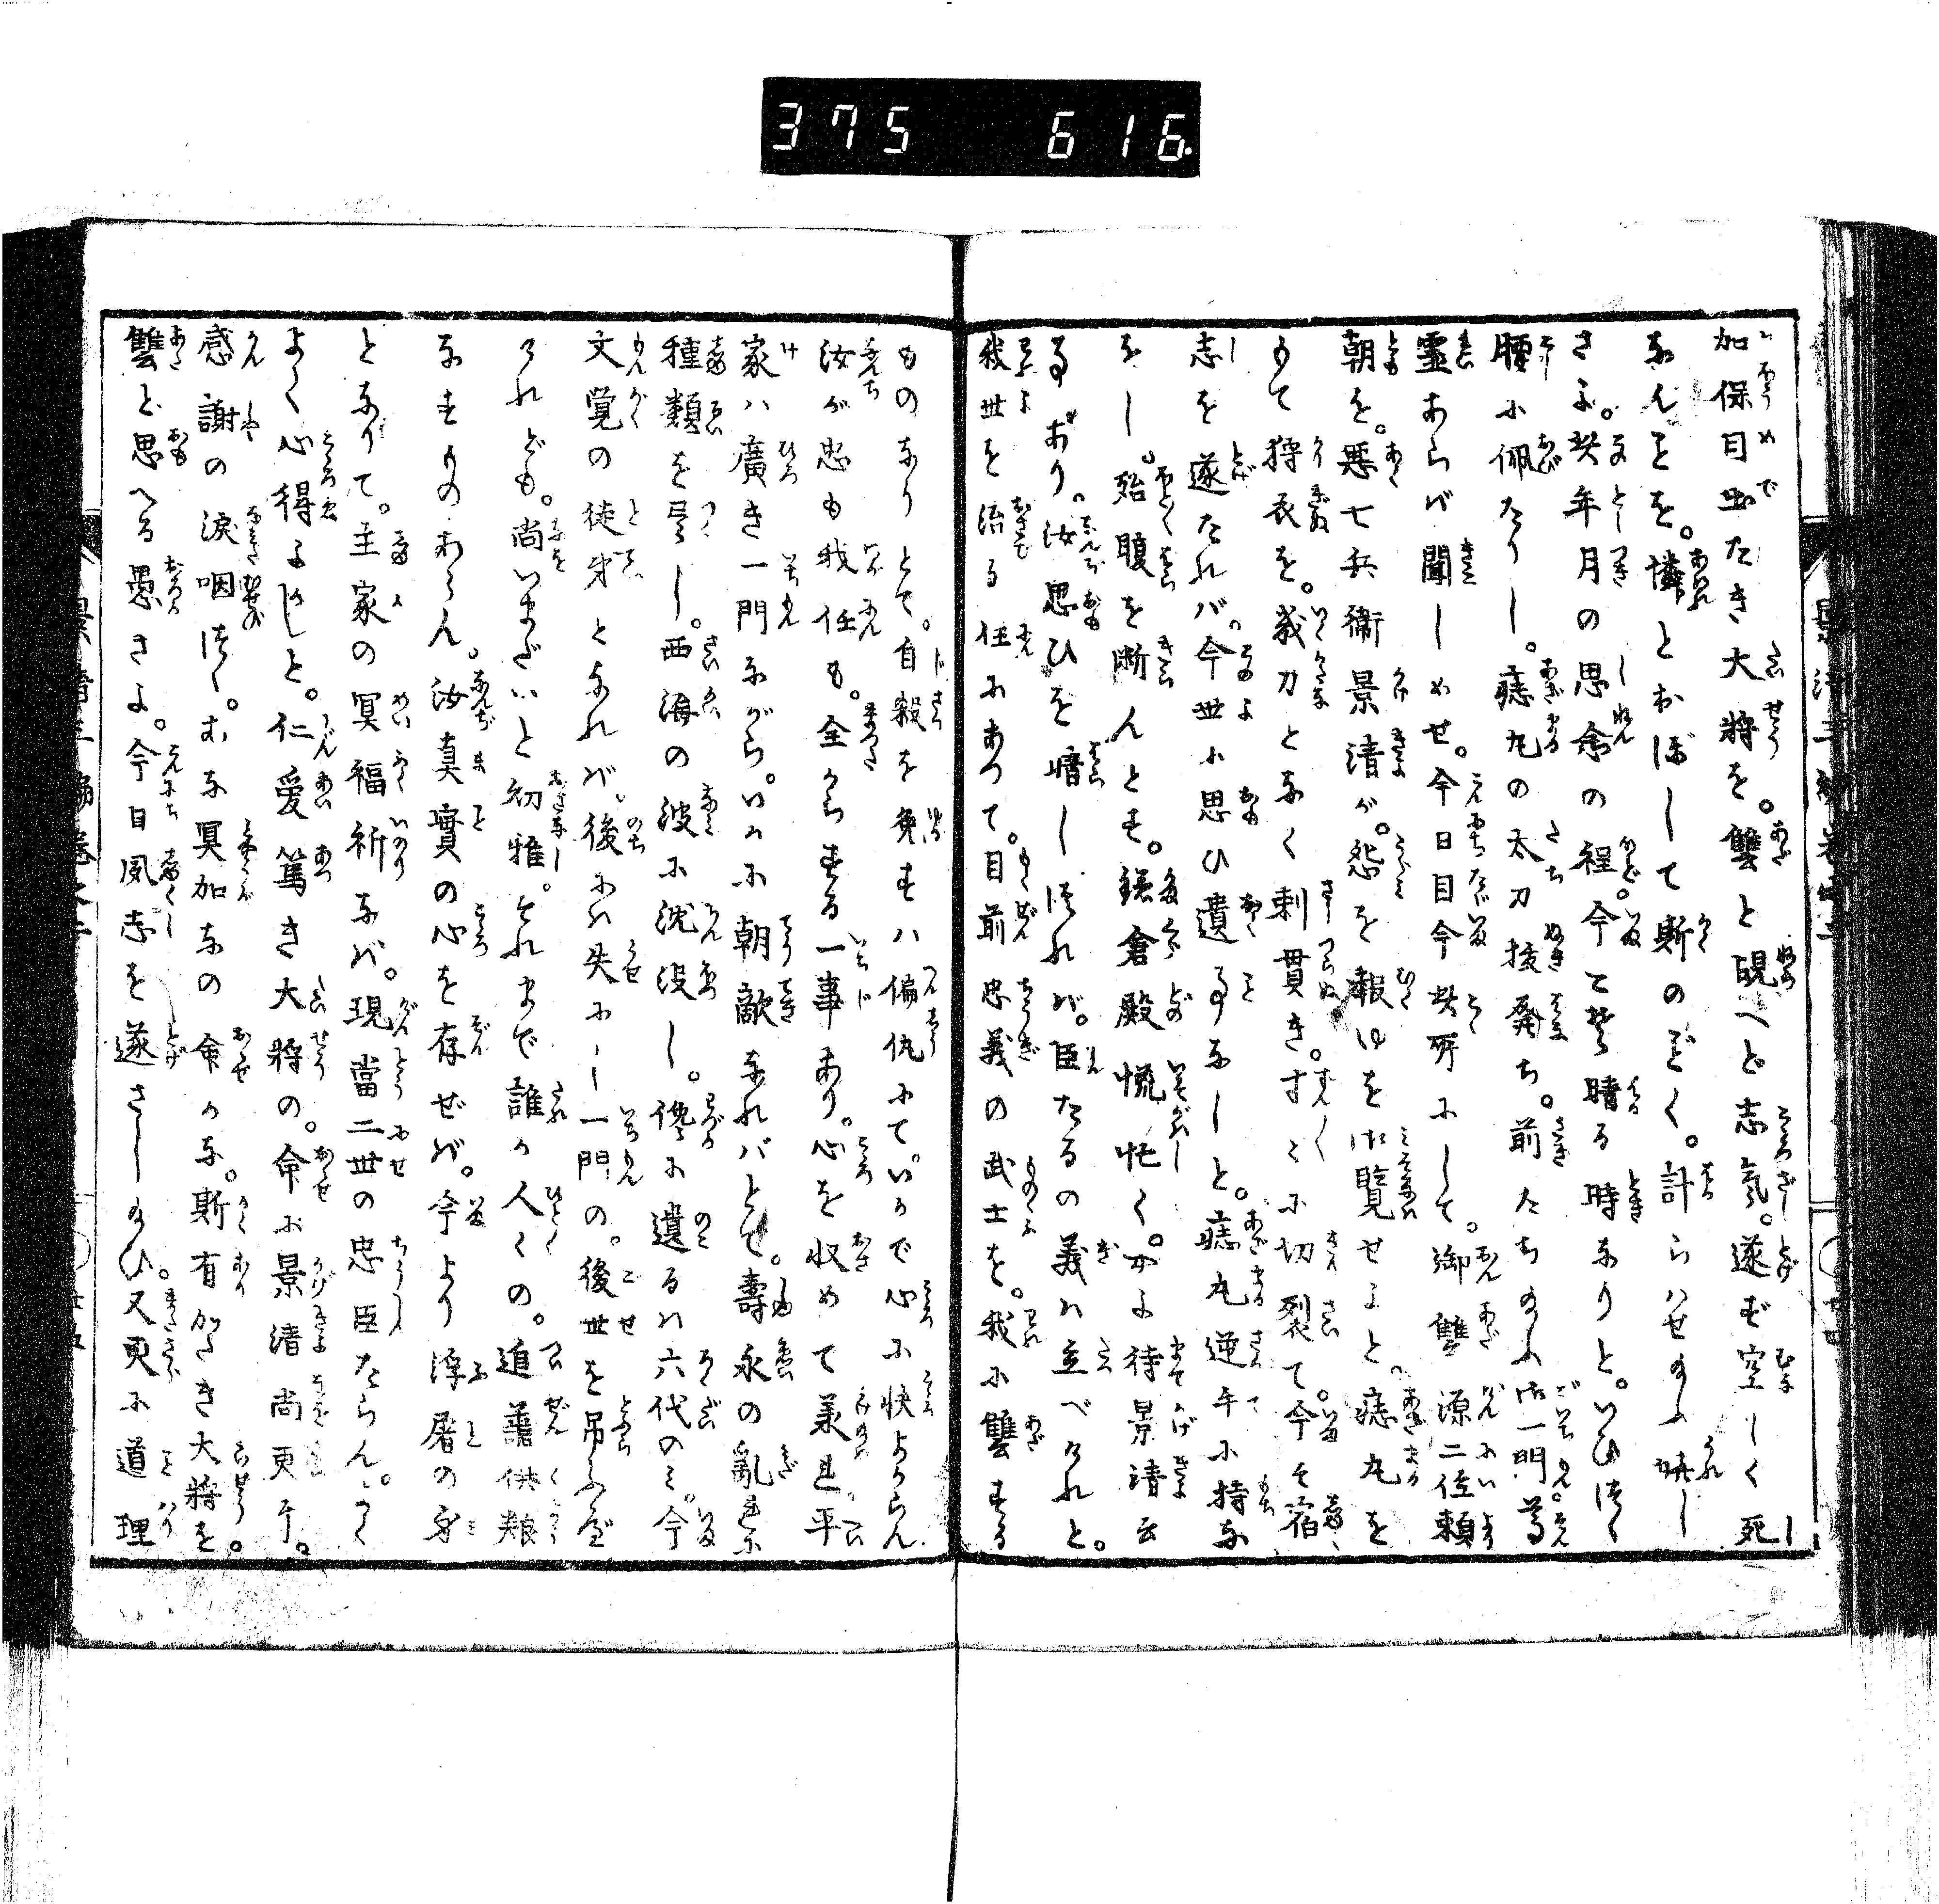 375 616
加保目出たき大將を。讐と覘へど志氣。遂ず空しく死
なんをを。憐とおぼして斯のごく。計らはせ給ふ嬉し
さよ。其年月の思念の程。今こそ晴る時なりと。いひつゝ
腰に佩たりし。痣丸の太刀抜発ち。前たち給ふ御一門尊
霊あらば聞しめせ。今日目今其所にして。御讐源二位頼
朝を。悪七兵衞景清が。怨を報ゆを御覧せよと。痣丸を
もて狩衣を。幾刀となく刺貫き。寸々に切裂て。今ぞ宿
志を遂たれバ。今世に思ひ遺事なしと。痣丸逆手に持な
をし。殆腹を断んとす。鎌倉殿慌忙く。やよ待景清云
事あり。汝思ひを晴しつれば。臣たるの義は立べけれと。
我世を治る任にあつて。目前忠義の武士を。我に讐する
ものなりとて。自殺を免すハ偏仇にて。いかで心に快よからん
汝が忠も我任も。全からする一事あり。心を収めて美  平
家ハ廣き一門ながら。いかに朝敵なればとて。壽永の亂に
種類を尽し。西海の波に沈没し。纔に遺るは六代のミ。今
文覚の徒弟となれば。後には失にし一門の。後世を吊ふ
られども。尚いまだいと幼稚。それまで誰か人々の。追善供
なすものあらん。汝真實の心を存ぜば。今より浮屠の身
となりて。主家の冥福祈なば。現當二世の忠臣たらん。
よく心得よかしと。仁愛篤き大將の。命に景清尚更に。
感謝の淚咽つゝ。こな冥加なの命かな。斯有がたき大將を
讐と思へる愚さよ。今日夙志を遂さし給ひ。又更に道理